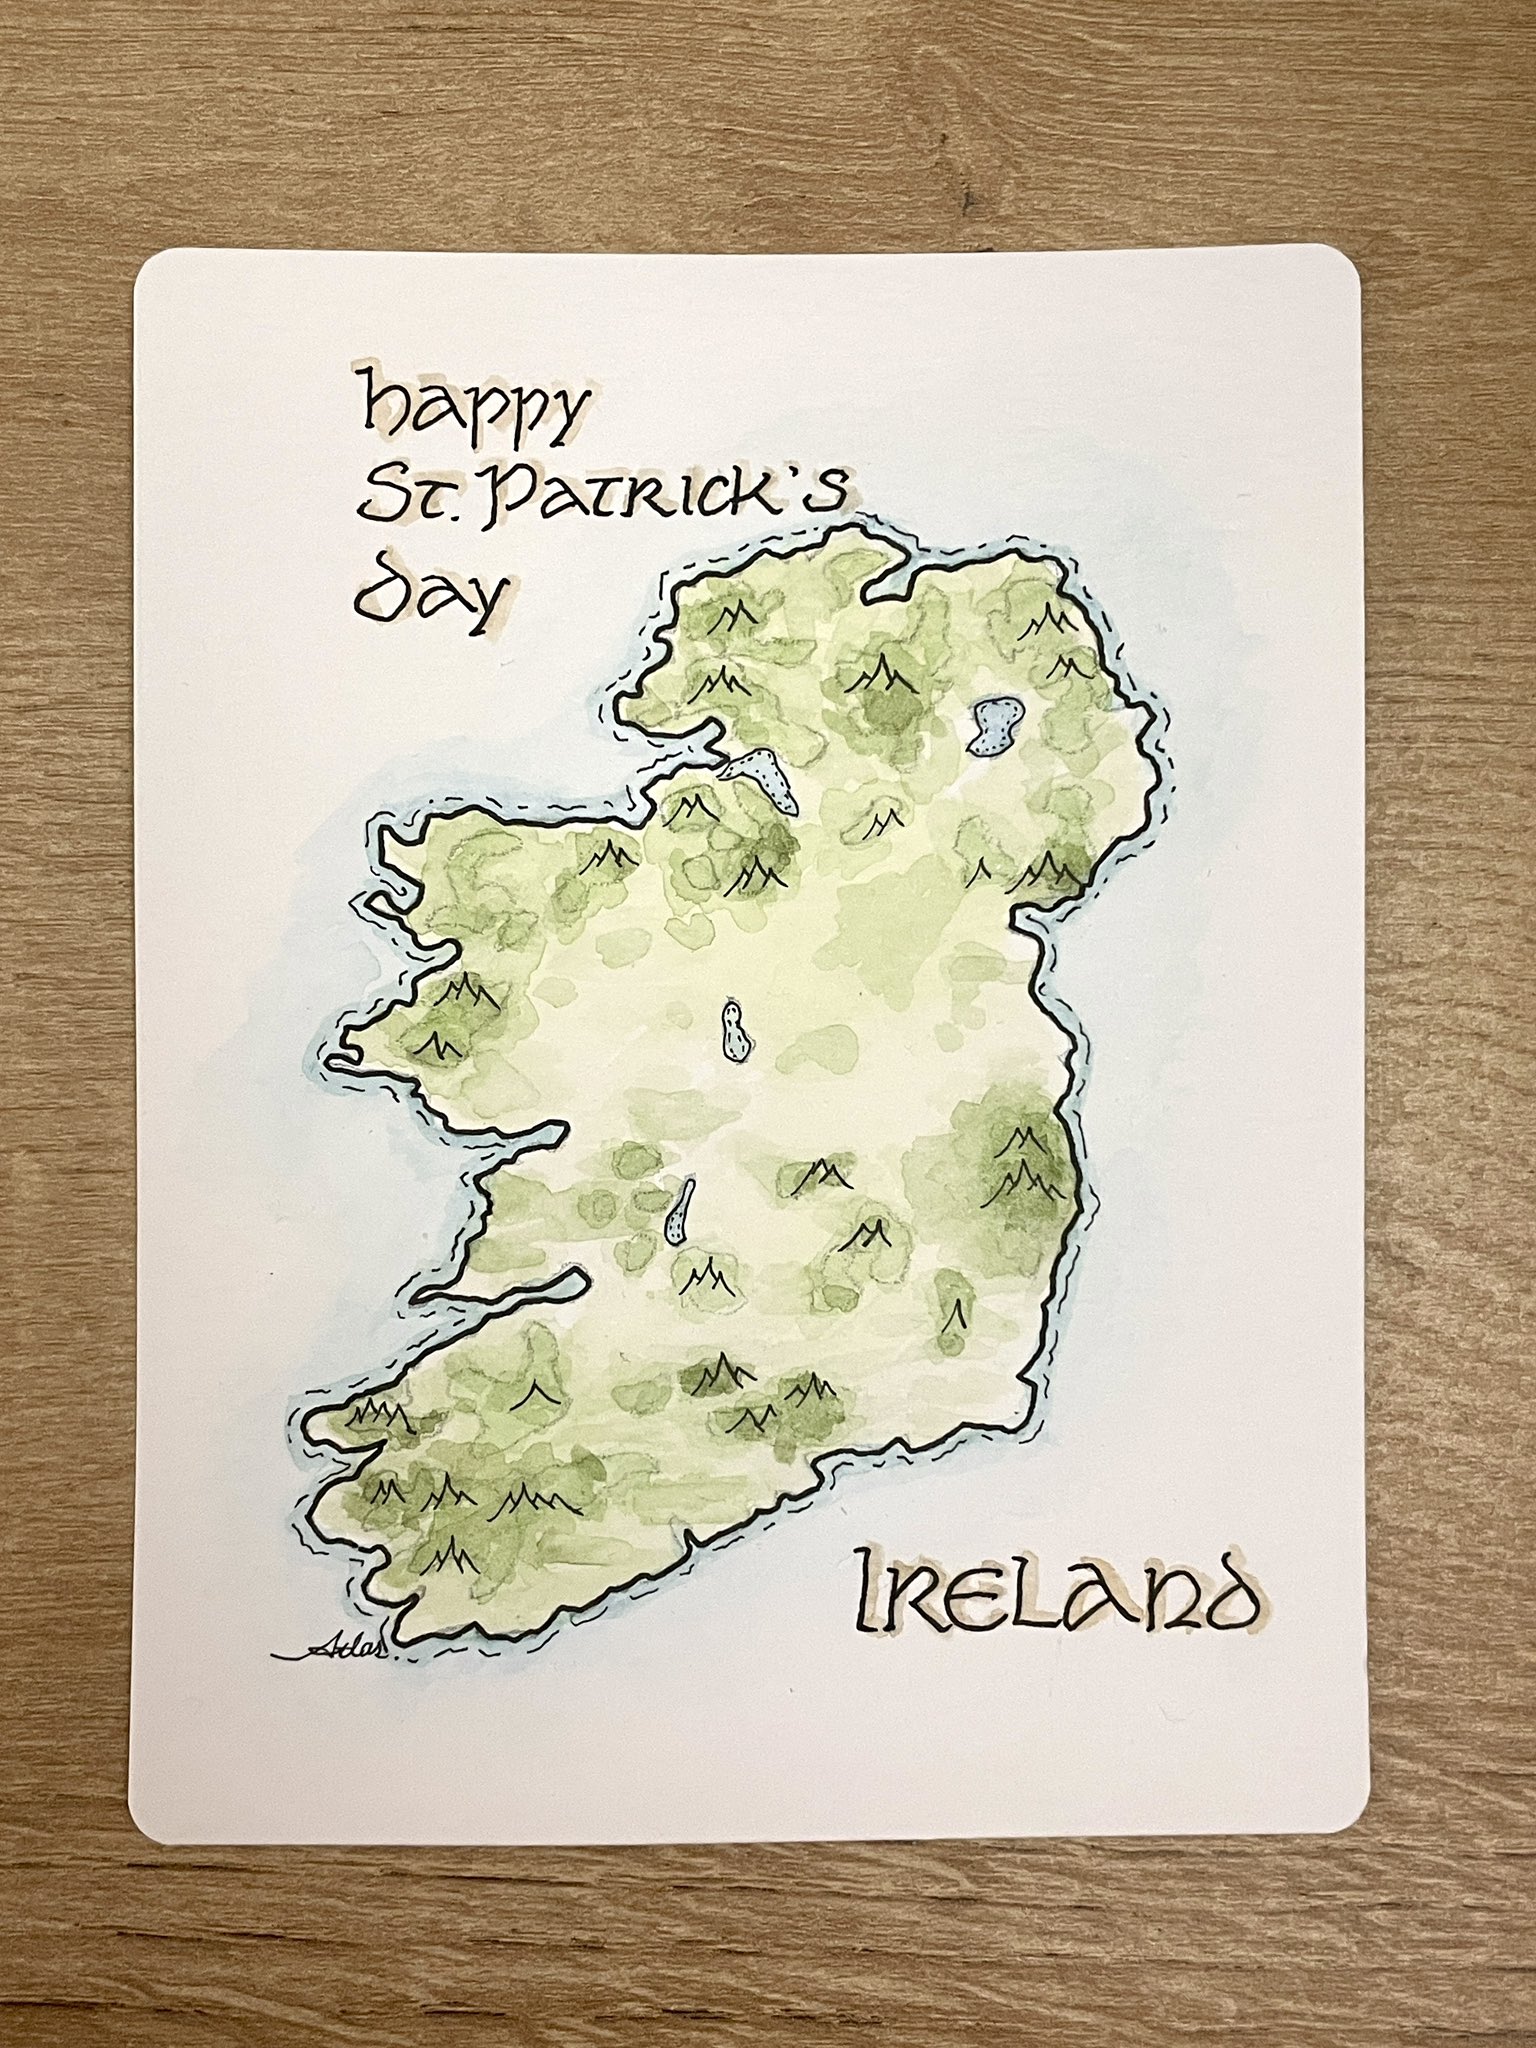 happy
St. Patrick's
day
Ireland
Atlas.